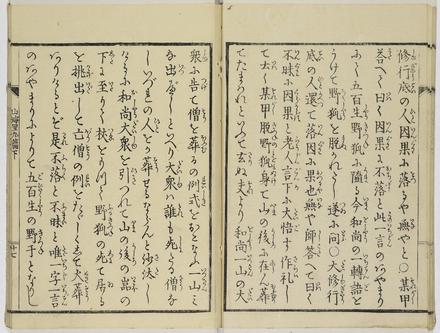 修行底の人因果に落るや無やと〇某甲
答へて曰因果に不落と此一言のあやまり
にて五百生野狐に墮る今和尚の一轉語を
うけて野狐を脱かれん遂に問〇大修行
底の人還て落因果也無や師答へて曰く
不昧因果と老人言下に大悟す作礼し
て去く某甲脱野狐身て山の後に在ん葬
てたまわれといふて去ぬ和尚一山の大
衆に告て僧を葬るの例式をおこなふ一山
出といへり大衆ハ誰も死る僧な
しいづれの人を葬せるならんと沙汰し
和尚大衆を引つれて山の後の嵓の
下に至り杖をもつて野狐の死て居る
を挑出して亡僧の例をなして火葬
ありしとぞ是不落と不昧と唯一字一言
のあやまりによりて五百生の野干となりし
山海里九篇下
廿七